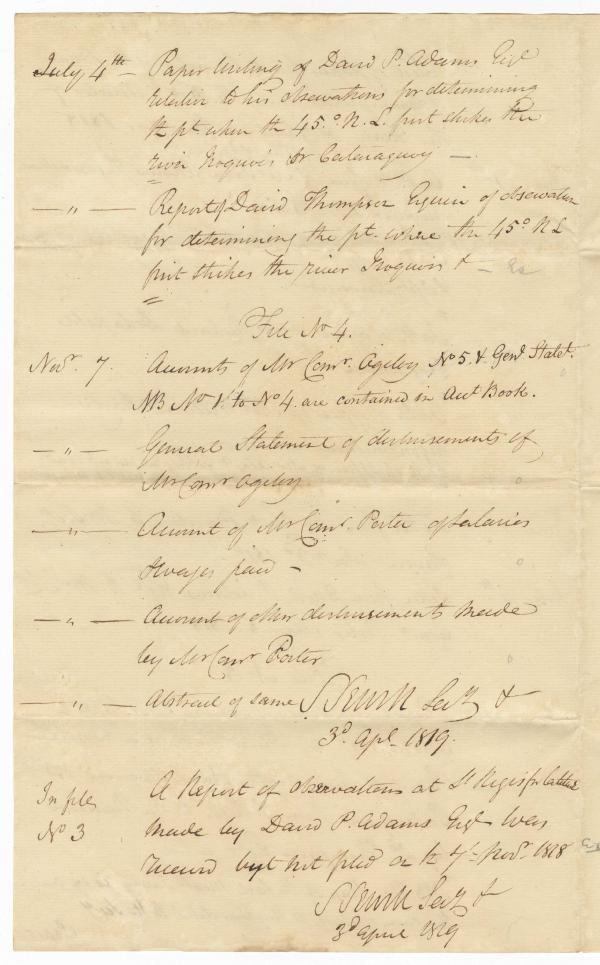 July 4th — Paper writing of David P. Adams Esqr
relative to his observations for determining
th pt. when th 45.° N. L. first strikes the
river Iroquois or Cataraguy —
— " — Report of David Thompson Esquire of observation
for determining the pt. where the 45° N L
first strikes the river Iroquois &
File No 4.
Novr. 7. Accounts of Mr Comr. Ogilvy No 5. & Genl Statet.
NB No 1. to No 4. are contained in Acct Book.
— " — General Statement of disbursements of
Mr Comr Ogilvy
— " — Account of Mr Comr. Porter of salaries
& wages paid —
— " — Account of other disbursements made
by Mr Comr Porter
— " — Abstract of same S Sewell Secy &
3d. Apl. 1819.
In file A Report of observations at St Regis for Latitude
No 3 made by David P. Adams Esqr was
received but not filed on th 7th Novr. 1818
S Sewell Secy &
3d April 1819